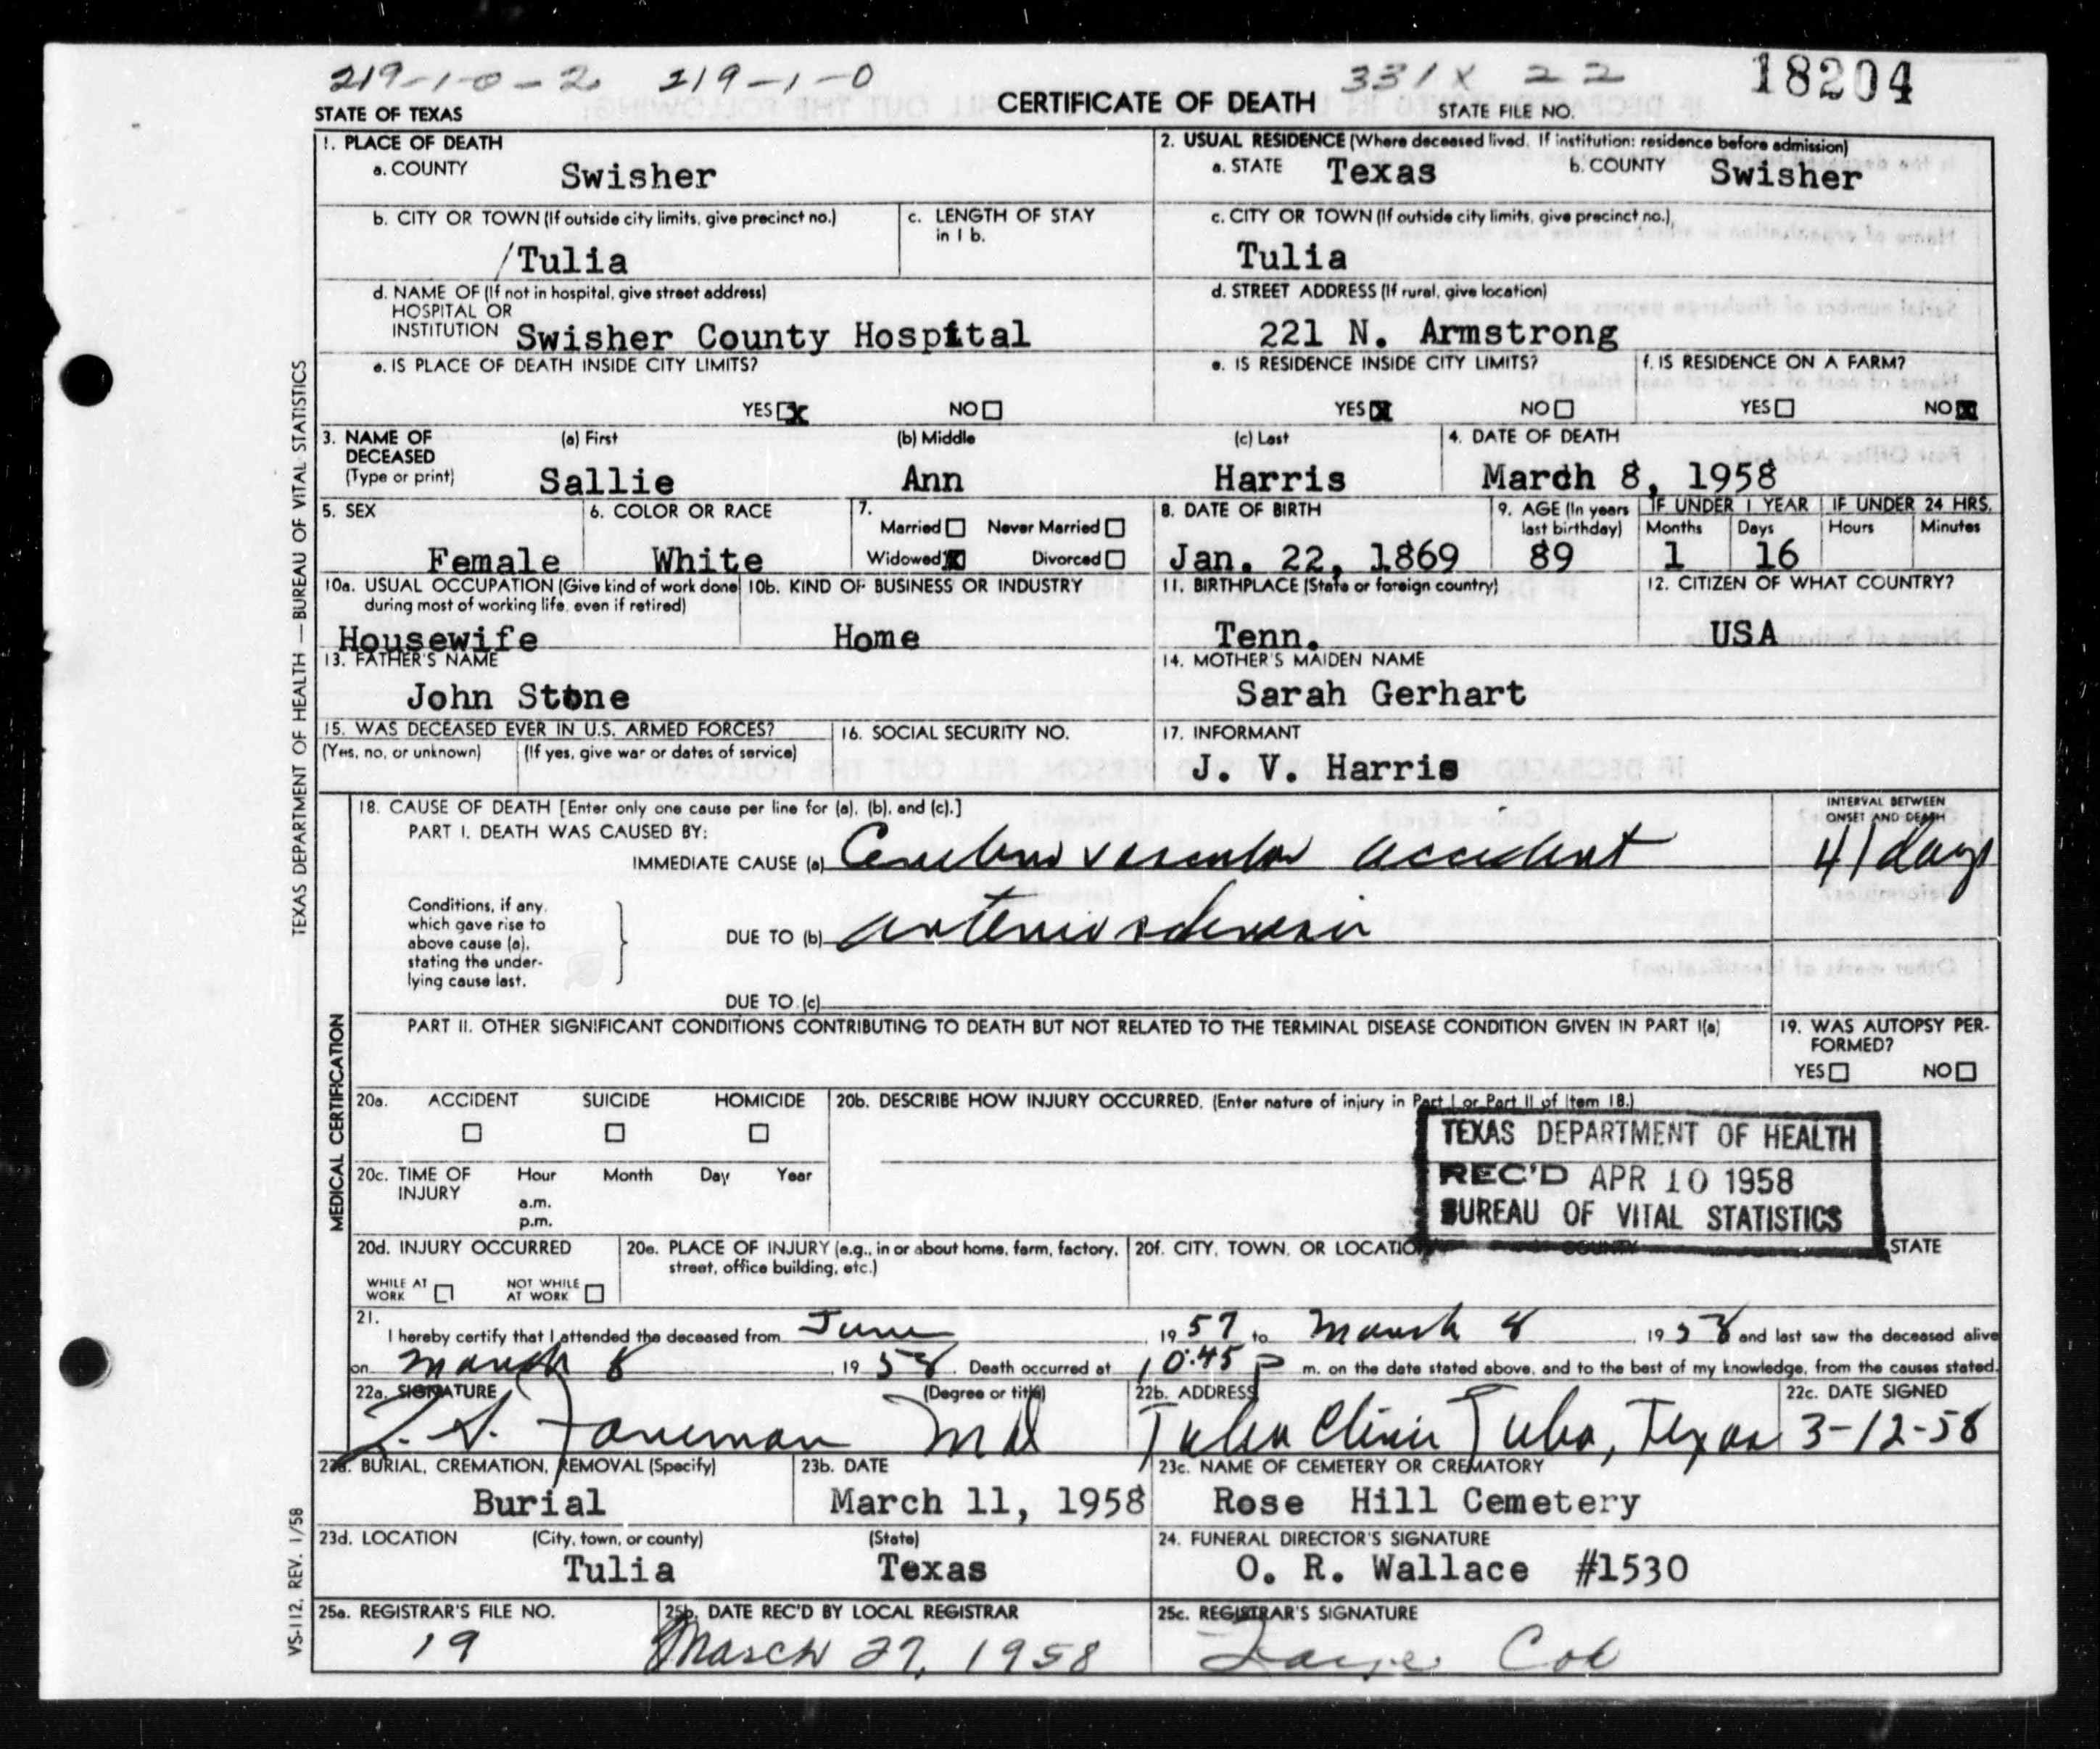 219-1-0-2 219-1-0 331X 22 18204
STATE OF TEXAS CERTIFICATE OF DEATH STATE FILE NO.
1. PLACE OF DEATH
a. COUNTY Swisher
2. USUAL RESIDENCE (Where deceased lived. If institution: residence before admission)
a. STATE Texas b. COUNTY Swisher
b. CITY OR TOWN (If outside city limits, give precinct no.)
/Tulia
c. LENGTH OF STAY
in 1 b.
c. CITY OR TOWN (If outside city limits, give precinct no.)
Tulia
d. NAME OF (If not in hospital, give street address)
HOSPITAL OR
INSTITUTION Swisher County Hospital
d. STREET ADDRESS (If rural, give location)
221 N. Armstrong
e. IS PLACE OF DEATH INSIDE CITY LIMITS?
YES X NO
e. IS RESIDENCE INSIDE CITY LIMITS?
YES X NO
f. IS RESIDENCE ON A FARM?
YES NO X
3. NAME OF
DECEASED
(Type or print)
(a) First (b) Middle (c) Last
Sallie Ann Harris
4. DATE OF DEATH
March 8, 1958
5. SEX
Female
6. COLOR OR RACE
White
7.
Married Never Married
Widowed X Divorced
8. DATE OF BIRTH
Jan. 22, 1869
9. AGE (In years
last birthday)
89
IF UNDER 1 YEAR IF UNDER 24 HRS.
Months Days Hours Minutes
1 16
10a. USUAL OCCUPATION (Give kind of work done
during most of working life, even if retired)
Housewife
10b. KIND OF BUSINESS OR INDUSTRY
Home
11. BIRTHPLACE (State or foreign country)
Tenn.
12. CITIZEN OF WHAT COUNTRY?
USA
13. FATHER'S NAME
John Stone
14. MOTHER'S MAIDEN NAME
Sarah Gerhart
15. WAS DECEASED EVER IN U.S. ARMED FORCES?
(Yes, no, or unknown) (If yes, give war or dates of service)
16. SOCIAL SECURITY NO.
17. INFORMANT
J. V. Harris
18. CAUSE OF DEATH [Enter only one cause per line for (a), (b), and (c).]
PART I. DEATH WAS CAUSED BY:
IMMEDIATE CAUSE (a) Cerebrovascular accident
INTERVAL BETWEEN
ONSET AND DEATH
41 days
Conditions, if any,
which gave rise to
above cause (a),
stating the under-
lying cause last.
DUE TO (b) arteriosclerosis
DUE TO (c)
PART II. OTHER SIGNIFICANT CONDITIONS CONTRIBUTING TO DEATH BUT NOT RELATED TO THE TERMINAL DISEASE CONDITION GIVEN IN PART I(a)
19. WAS AUTOPSY PER-
FORMED?
YES NO
20a. ACCIDENT SUICIDE HOMICIDE
20b. DESCRIBE HOW INJURY OCCURRED. (Enter nature of injury in Part I or Part II of Item 18.)
TEXAS DEPARTMENT OF HEALTH
REC'D APR 10 1958
BUREAU OF VITAL STATISTICS
20c. TIME OF
INJURY
Hour Month Day Year
a.m.
p.m.
20d. INJURY OCCURRED
WHILE AT
WORK
NOT WHILE
AT WORK
20e. PLACE OF INJURY (e.g., in or about home, farm, factory,
street, office building, etc.)
20f. CITY, TOWN, OR LOCATION COUNTY STATE
21.
I hereby certify that I attended the deceased from June, 1957 to March 8, 1958 and last saw the deceased alive
on March 8, 1958. Death occurred at 10:45 P m. on the date stated above, and to the best of my knowledge, from the causes stated.
22a. SIGNATURE (Degree or title)
Foreman MD
22b. ADDRESS
Tulia Clinic Tulia, Texas
22c. DATE SIGNED
3-12-58
23a. BURIAL, CREMATION, REMOVAL (Specify)
Burial
23b. DATE
March 11, 1958
23c. NAME OF CEMETERY OR CREMATORY
Rose Hill Cemetery
23d. LOCATION (City, town, or county) (State)
Tulia Texas
24. FUNERAL DIRECTOR'S SIGNATURE
O. R. Wallace #1530
25a. REGISTRAR'S FILE NO.
19
25b. DATE REC'D BY LOCAL REGISTRAR
March 27, 1958
25c. REGISTRAR'S SIGNATURE
TEXAS DEPARTMENT OF HEALTH — BUREAU OF VITAL STATISTICS
MEDICAL CERTIFICATION
VS-112, REV. 1/58